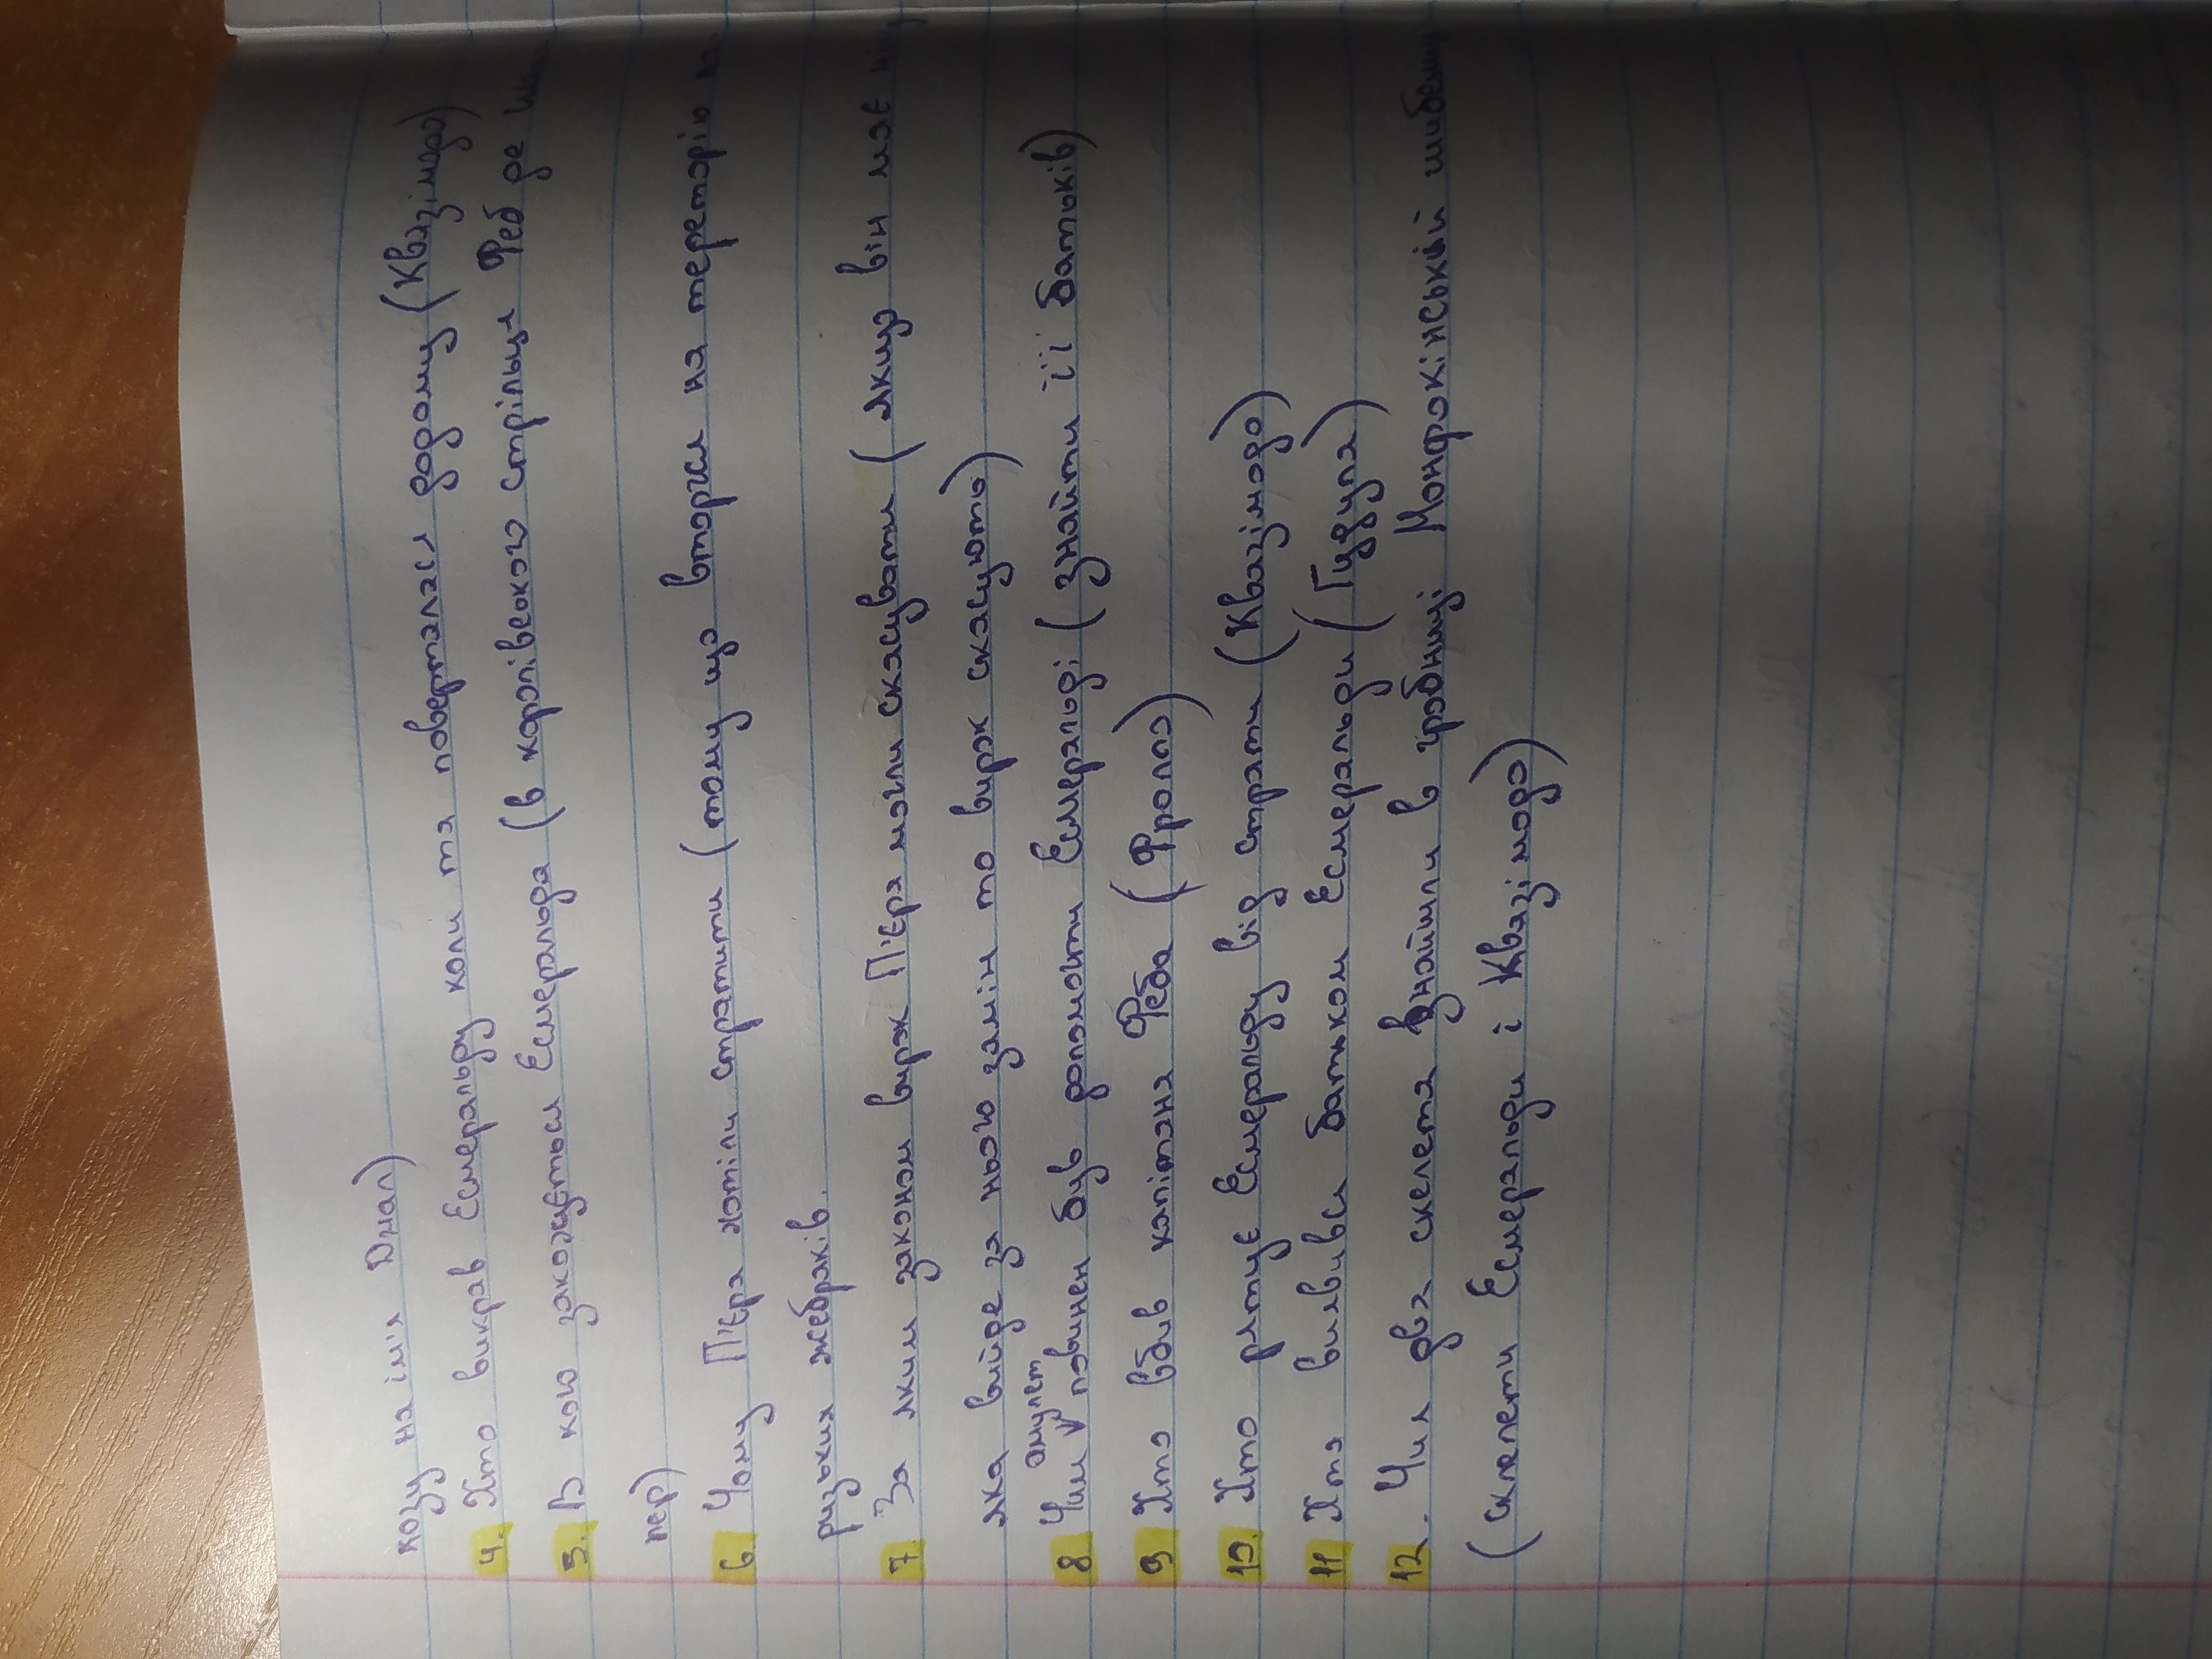 козу на імя Джалі)
4. Хто викрав Есмеральду коли та поверталася додому (Квазімодо)
5. В кого закохується Есмеральда (в королівського стрільця Феб де Ша
пер)
6 Чому П'єра хотіли стратити (тому що вдорши на територію
риузника жебраків.
7 За яким законом вирок П'єра могли скасувати (якщо він має
яка вийде за нього заміж то вирок скасують)
8 Чим амулет повинен був допомогти Есмеральді (знайти її батьків)
9 Хто вбив капітана Феба (Фролло)
10. Хто рятує Есмеральду від страти (Квазімодо)
11 Хто виявився батьком Есмеральди (Гудула)
12. Чиї два скелета знайшли в гробниці Монфоконській шибениц
(скелети Есмеральди і Квазімодо)